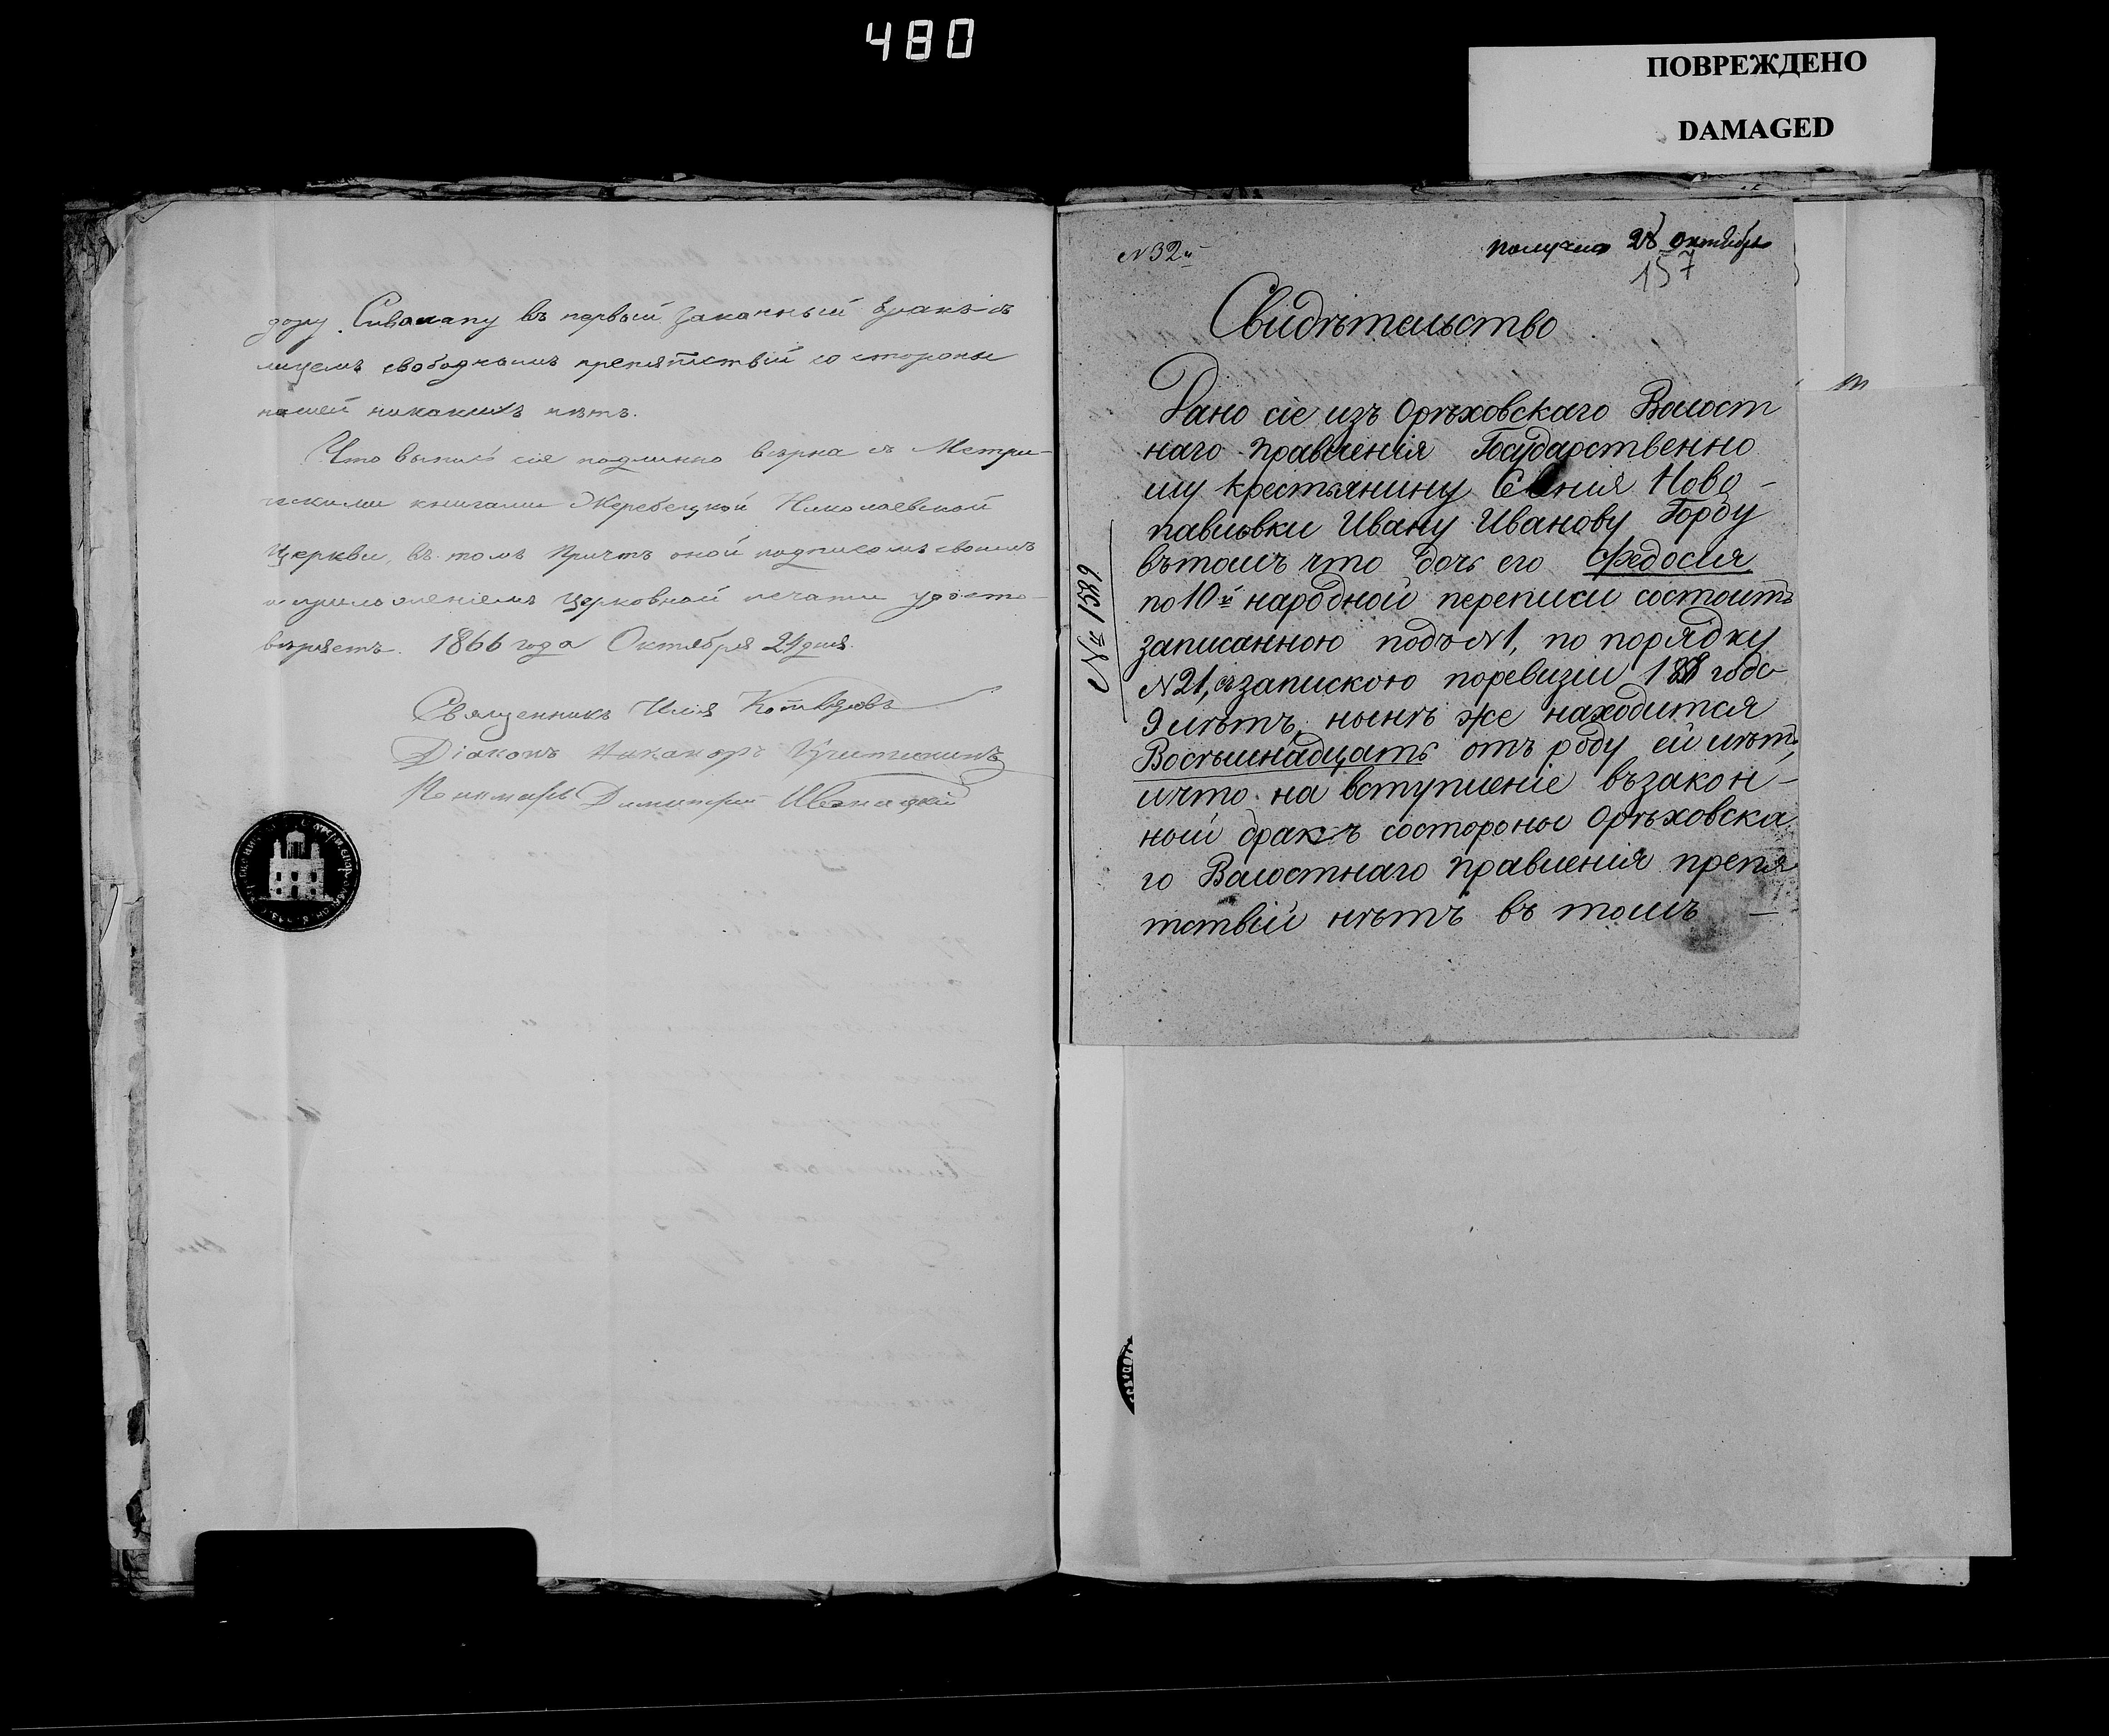 480
ПОВРЕЖДЕНО
DAMAGED
дору Сивакану въ первый законный бракъ съ
лицемъ свободнымъ препятствій со стороны
нашей никакихъ нѣтъ.
Что выпись сія подлинно вѣрна съ Метри-
ческими книгами Жеребецкой Николаевской
Церкви, въ томъ Причтъ оной подписомъ своимъ
и приложеніемъ Церковной печати удосто-
вѣряетъ. 1866 года Октября 24 дня.
Священникъ Илія
Діаконъ Никаноръ
Пономарь Димитрій
N 32й
получено 28 октября
157
Свидѣтельство
Дано сіе изъ Орѣховскаго Волост
наго Правленія Государственно
му крестьянину Сѣлнія Ново-
павловки Ивану Иванову Горбу
вътомъ что дочь его Федосія
по 10й народной переписи состоитъ
записанною подъ N1, по порядку
N21, съзапискою поревизіи 1858 года
9 лѣтъ, нынѣ же находится
Восѣмнадцать отъ роду ей лѣтъ,
ичто на вступленіе възакон-
ный бракъ состороны Орѣховска
го Валостнаго Правленія препя
тствій нѣтъ въ томъ —
№ 1389